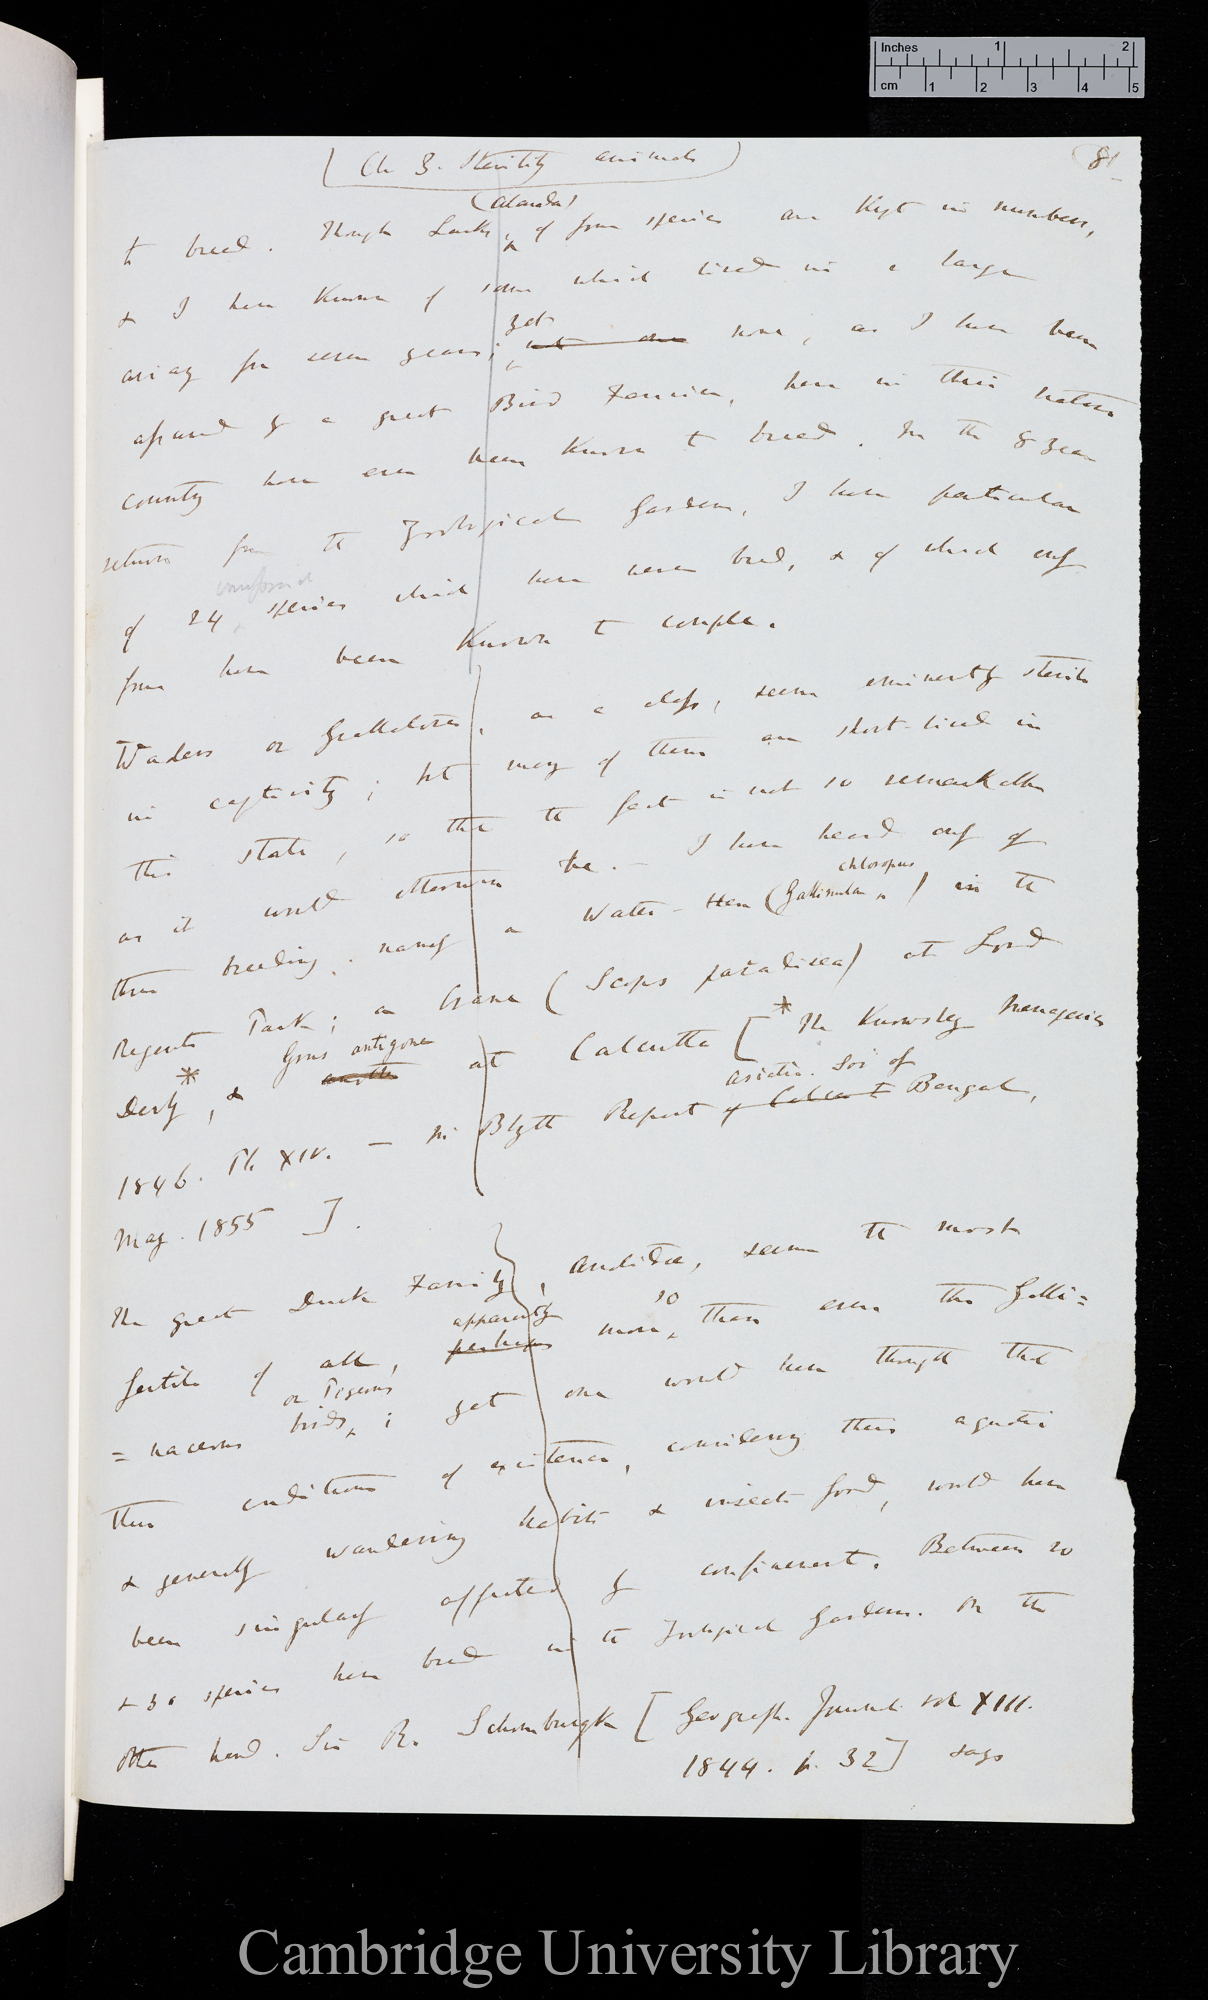 Inches 1 2
cm 1 2 3 4 5
(Ch 3. Sterility animals)
81
(Alauda)
to breed. Though Larks, of four species are kept in numbers,
& I have known of some which lived in a large
yet
aviary for seven years; but are none, as I have been
assured by a great Bird Fancier, here in their native
country have ever been known to breed. In the 8 year
returns from the Zoological Gardens, I have particulars
of 24 species which have never bred, & of which only
four have been known to couple.
Waders or Grallatores, as a class, seem eminently sterile
in captivity; but many of them are short-lived in
this state, so that the fact is not so remarkable
as it would otherwise be. — I have heard only of
chloropus
three breeding, namely a Water-Hen (Gallinula) in the
Regents Park; a Crane (Scops paradisea) at Lord
Grus antigone
Derby*, & another at Calcutta [* The Knowsley Menagerie
asiatic. Soc of
1846. Pl. XIV. — In Blyth Report of Calcutta Bengal,
May. 1855].
The great Duck Family, Anatidae, seem the most
apparently so
fertile of all, perhaps more, than even the Galli=
or Pigeons
=naceous birds; yet one would have thought that
their conditions of existence, considering their aquatic
& generally wandering habits & insect food, would have
been singularly affected by confinement. Between 20
& 30 species have bred in the Zoological Gardens. On the
other hand. Sir R. Schomburgk [Geograph. Journal. vol XIII.
1844. p. 32] says
Cambridge University Library